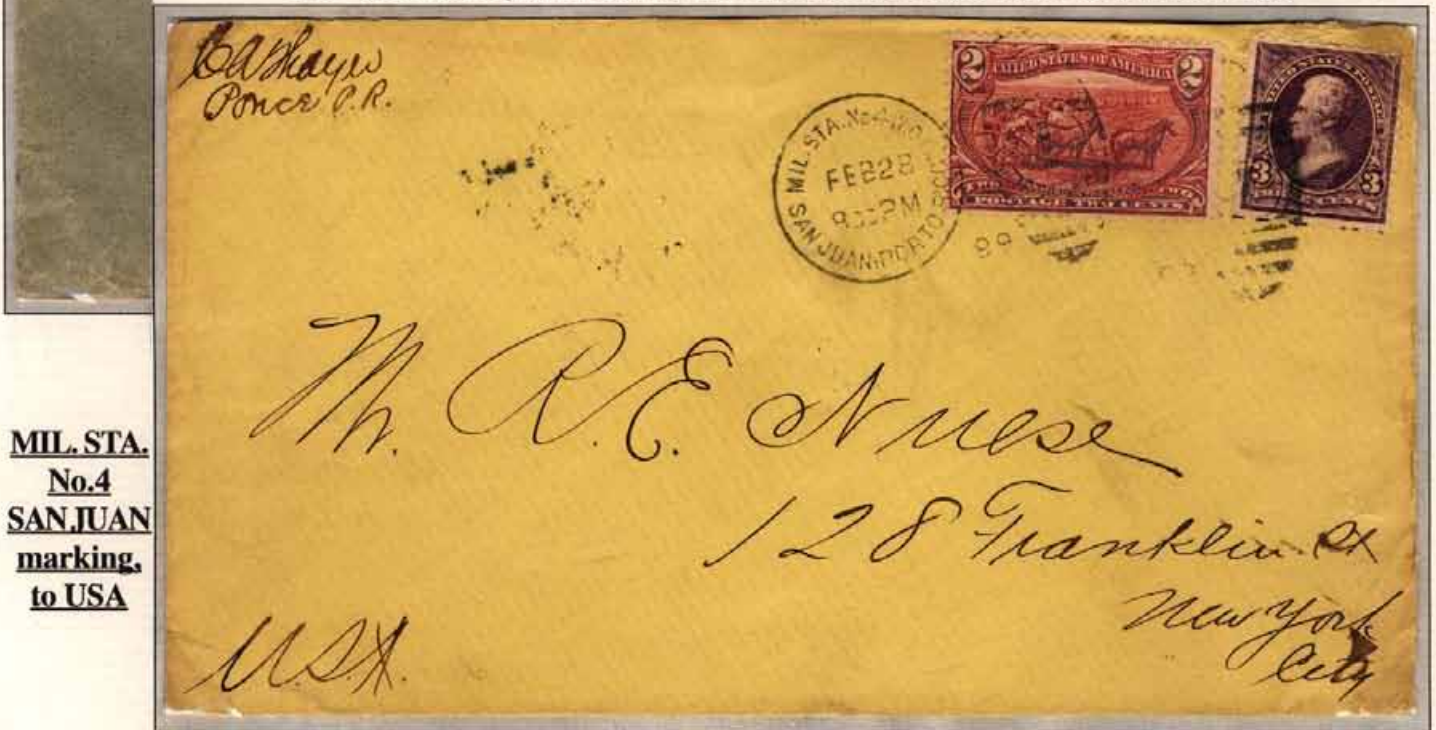 MIL. STA.
No.4
SAN JUAN
marking,
to USA
Ponce P.R.
MIL. STA. No 4
FEB 28
PM
SAN JUAN PORTO
99
2 UNITED STATES OF AMERICA 2
POSTAGE TWO CENTS
UNITED STATES POSTAGE
3 3
CENTS
Mr. R. E. Nuese
128 Franklin St
New York
City
U.S.A.